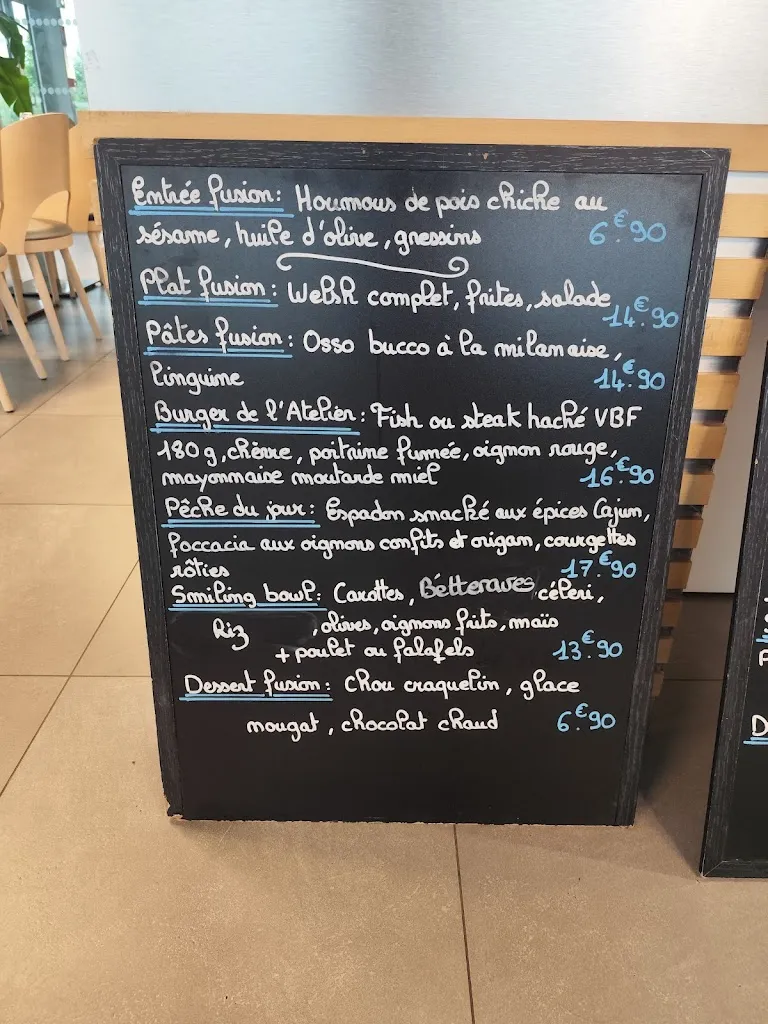 Entrée fusion: Houmous de pois chiche au
sésame, huile d'olive, gressins 6.€90
Plat fusion: Welsh complet, frites, salade
14.€90
Pâtes fusion: Osso bucco à la milanaise,
linguine 14.€90
Burger de l'Atelier: Fish ou steak haché VBF
180g, chèvre, poitrine fumée, oignon rouge,
mayonnaise moutarde miel 16.€90
Pêche du jour: Espadon smacké aux épices Cajun,
foccacia aux oignons confits et origan, courgettes
rôties 17.€90
Smiling bowl: Carottes, Bétteraves céleri,
Riz , olives, oignons frits, maïs
+ poulet ou falafels 13.€90
Dessert fusion: Chou craquelin, glace
nougat, chocolat chaud 6.€90
P
D